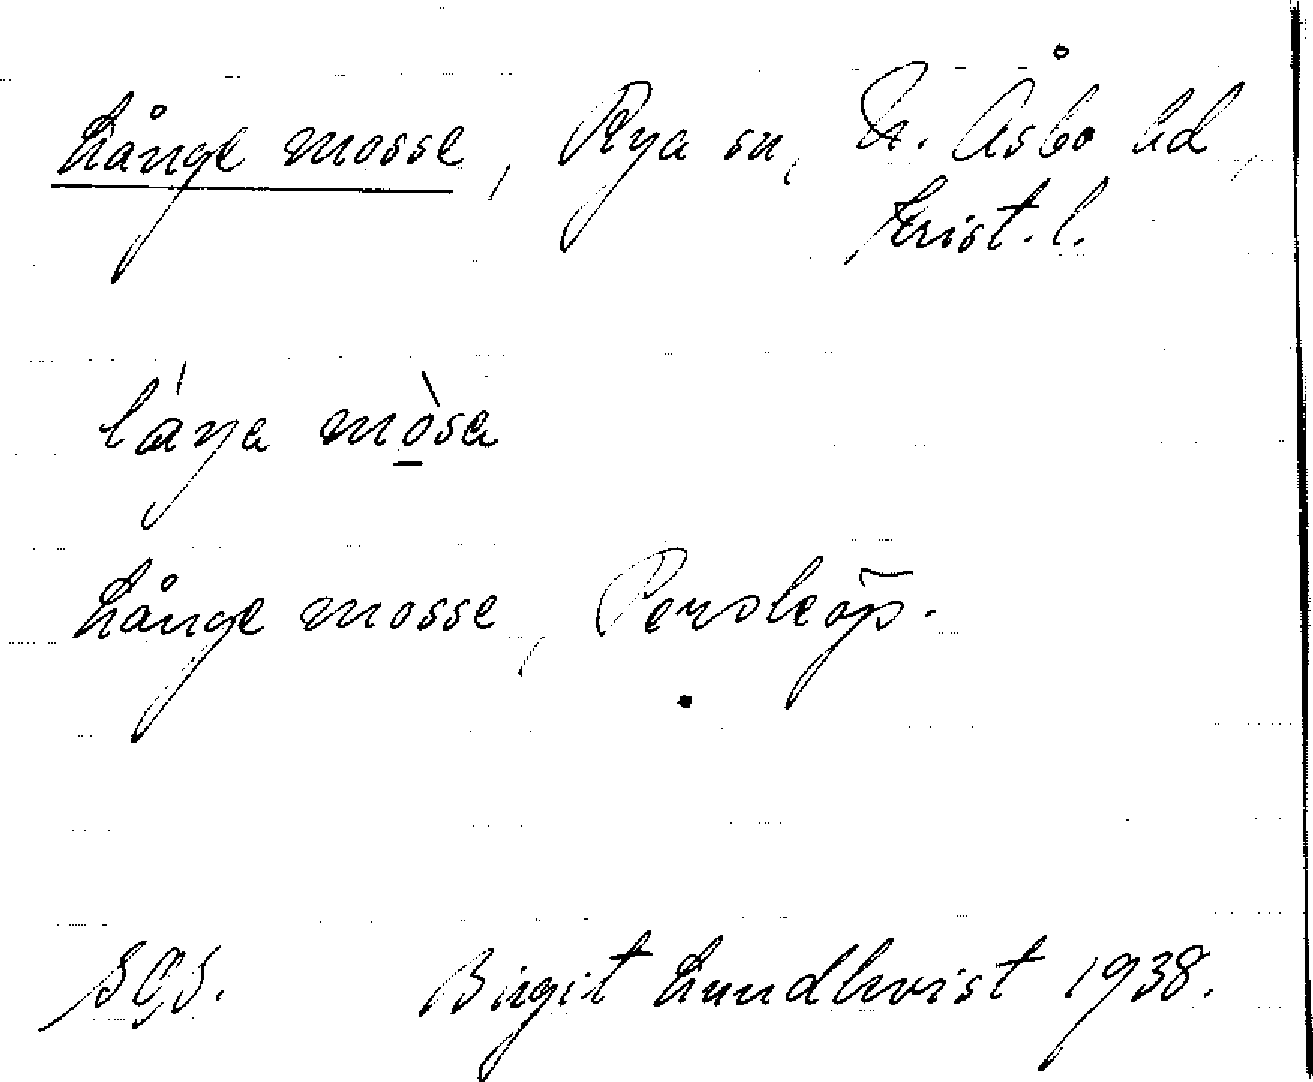 Långe mosse, Rya sn, N. Åsbo hd,
Krist. l.
låŋa mòsa
Långe mosse, Perstorp.
SGS. Birgit Lundkvist 1938.